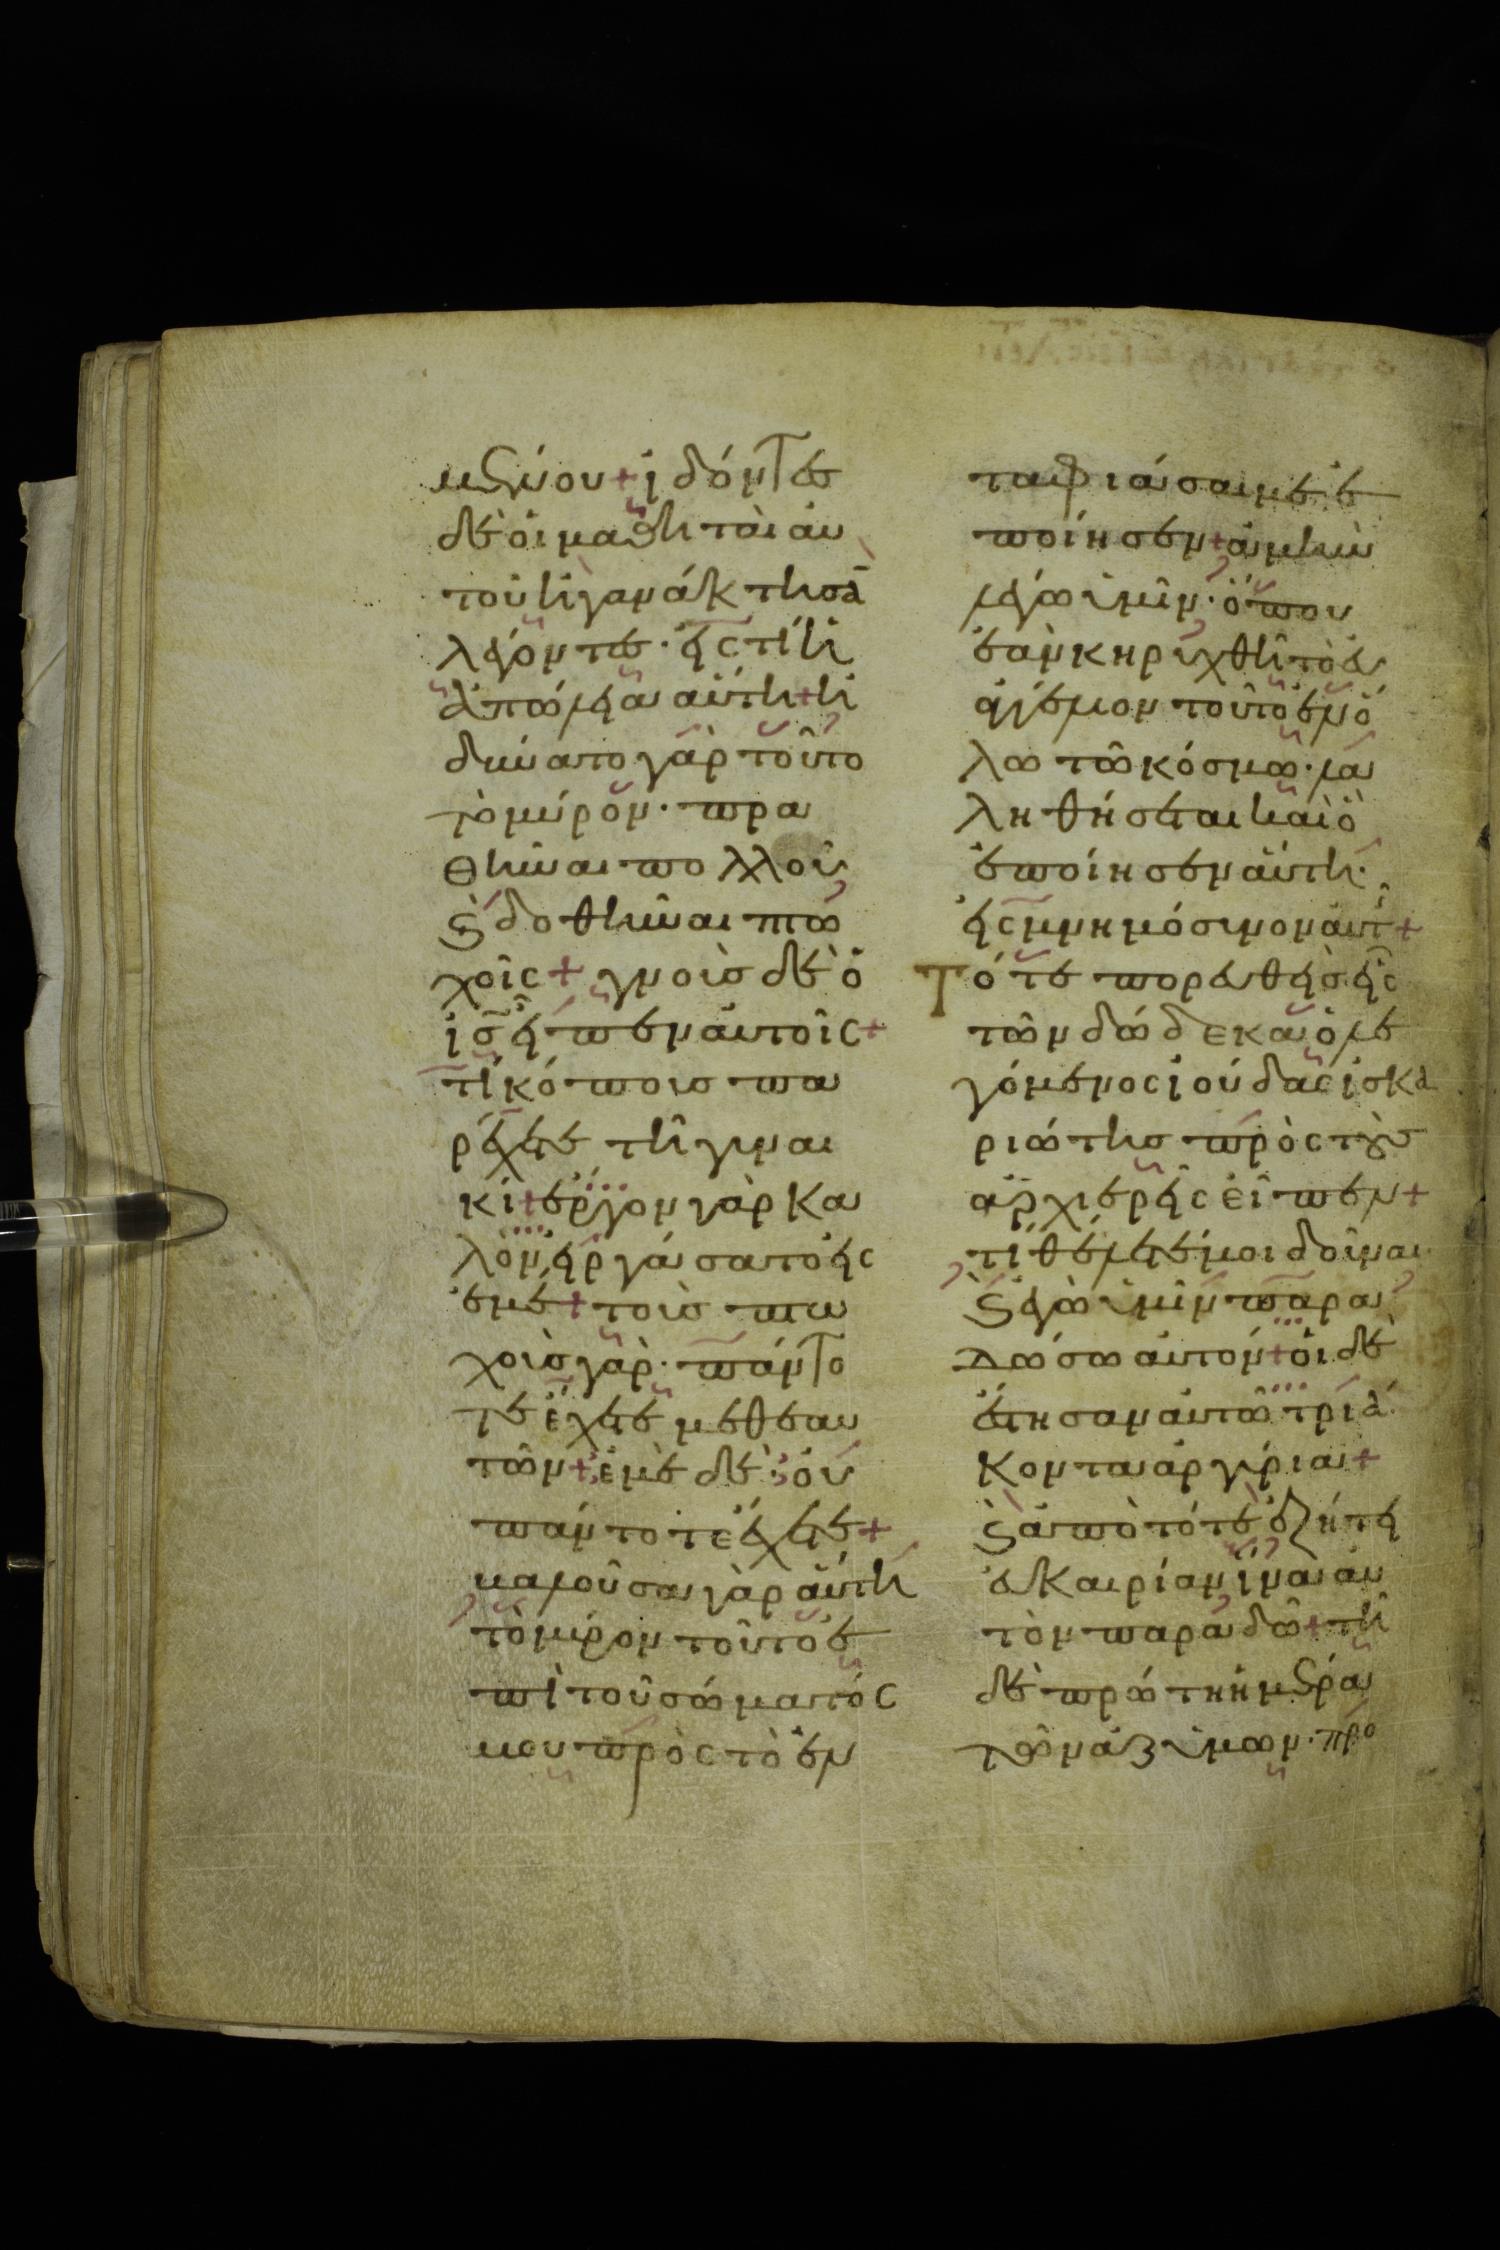 κειμένου + ἰδόντες
δὲ οἱ μαθηταὶ αυ
τοῦ ἠγανάκτησᾱ
λέγοντες · εἰς τί ἡ
ἀπώλεια αὕτη + ἠ
δύνατο γὰρ τοῦτο
τὸ μύρον · πρα
θῆναι πολλοῦ
ϗ δοθῆναι πτω
χοῖς + γνοὺς δὲ ὁ
ἰς̅ εἶπεν αὐτοῖς +
τί κόπους πα
ρέχετε τῆ γυναι
κί + ἔργον γὰρ κα
λὸν εἰργάσατο εἰς
ἐμέ + τοὺς πτω
χοὺς γὰρ · πάντο
τε ἔχετε μεθεαυ
τῶν + ἐμὲ δὲ οὐ
πάντοτε ἔχετε +
βαλοῦσα γὰρ αὕτη
τὸ μύρον τοῦτο ἐ
πὶ τοῦ σώματος
μου πρὸς τὸ ἐν
ταφιάσαι με ἐ
ποίησεν + ἀμὴν
λέγω ὑμῖν · ὅπου
ἐὰν κηρυχθῆ τὸ εὐ
αγγέλιον τοῦτο ἐν ὅ
λω τῶ κόσμω · λα
ληθήσεται καὶ ὃ
ἐποίησεν αὕτη ·
εἰς μνημόσυνον αὐτῆς +
Τότε πορευθεὶς εἷς
τῶν δώδεκα ὁ λε
γόμενος ἰούδας ἰσκα
ριώτης πρὸς τοὺς
ἀρχιερεῖς εἶπεν +
τί θέλετέ μοι δοῦναι
ϗ ἐγὼ ὑμῖν παρα
δώσω αὐτόν + οἱ δὲ
ἔστησαν αὐτῶ τριά
κοντα ἀργύρια +
ϗ ἀπὸ τότε ἐζήτει
εὐκαιρίαν ἵνα αὐ
τὸν παραδῶ + τῆ
δὲ πρώτη ἡμέρα
τῶν ἀζύμων · προ